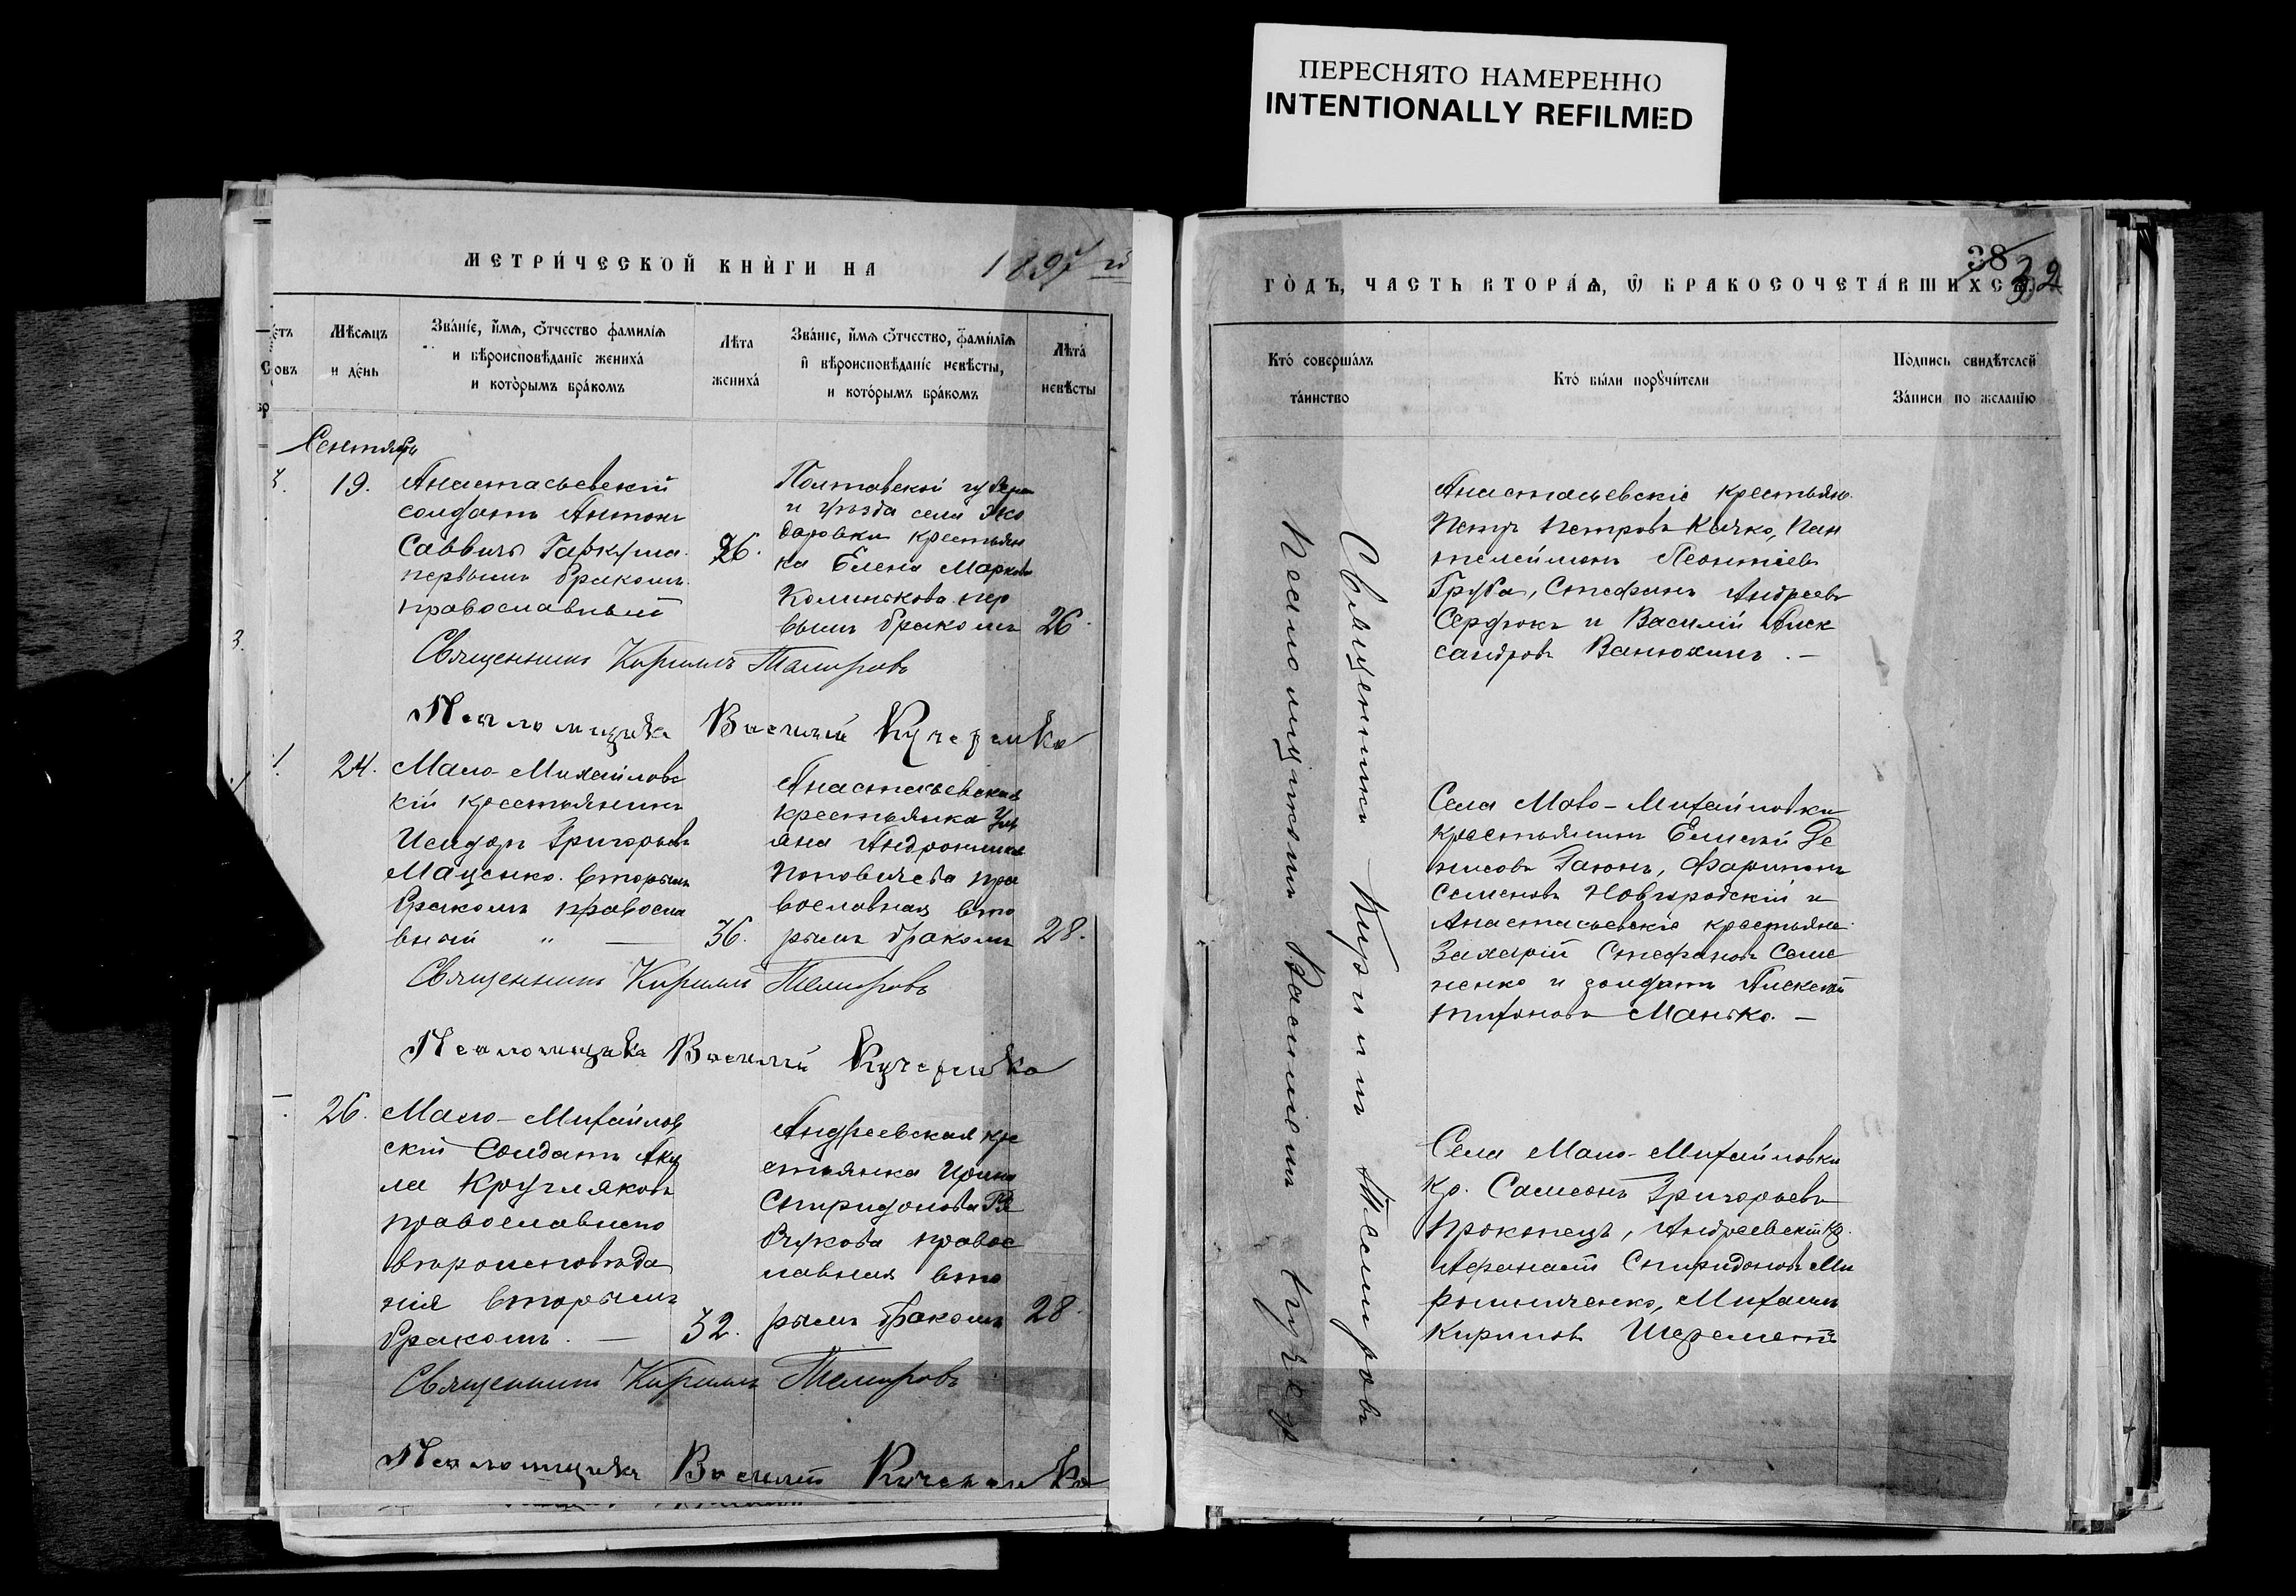 ПЕРЕСНЯТО НАМЕРЕННО
INTENTIONALLY REFILMED
МЕТРИ́ЧЕСКОЙ КНИ́ГИ НА 1897 й
Мѣсяцъ и де́нь
Зва́ніе, и҆́мѧ, ѻ҆́тчество фамилїѧ и вѣроисповѣ́даніе жениха́ и кото́рымъ бра́комъ
Лѣта жениха́
Зва́ніе, и҆́мѧ ѻ҆́тчество, фами́лїѧ и҆ вѣроисповѣ́даніе невѣ́сты, и кото́рымъ бра́комъ
Лѣта́ невѣ́сты
Сентябрь
19.
Анастасьевскій
солдатъ Антонъ
Саввинъ Гаркуша
первымъ бракомъ
православный
26.
Полтавской губерн
и уѣзда села
даровки крестьян
ка Елена Маркова
пер
вымъ бракомъ
26
Священникъ Кириллъ
Псаломщикъ Василій
24.
Мало-Михайловс
кій крестьянинъ
Исидоръ Григорьевъ
Маценко вторымъ
бракомъ правосла
вный " —
36.
Анастасьевская
крестьянка Уль
яна Андроникова
Поповичева пра
вославная вто
рымъ бракомъ
28.
Священникъ Кириллъ
Псаломщикъ Василій
26.
Мало-Михайлов
скій Солдатъ Аки
ла Кругляковъ
православнаго
вѣроисповѣда
нія вторымъ
бракомъ. —
32.
Андреевская кре
стьянка Ирина
Спиридонова
правос
лавная вто
рымъ бракомъ
28
Священникъ Кириллъ
Псаломщикъ Василій
38
32
ГО́ДЪ, ЧАСТЬ ВТОРА́Ѧ, Ѽ БРАКОСОЧЕТА́ВШИХСѦ
Кто́ соверша́лъ та́инство
Кто́ бы́ли порꙋчи́тели
По́дпись свидѣ́телей за́писи по жела́нїю
Священникъ Кириллъ
Псаломщикомъ Василіемъ
Анастасьевскіе крестьяне
Петръ Петровъ Качко, Пан
телеймонъ Леонтіевъ
Груба, Стефанъ Андреевъ
Сердюкъ и Василій Алек
сандровъ Ванюхинъ. —
Села Мало-Михайловки
крестьянинъ Елисей Де
нисовъ Харитонъ
Семеновъ Новгородскій и
Анастасьевскіе крестьяне
Захарій Стефановъ Семе
ненко и солдатъ Алексѣй
Манько. —
Села Мало-Михайловки
кр. Самсонъ Григорьевъ
Прокопецъ, Андреевскій кр.
Афанасій Спиридоновъ Ми
рошниченко, Михаилъ
Кириловъ Шереметъ